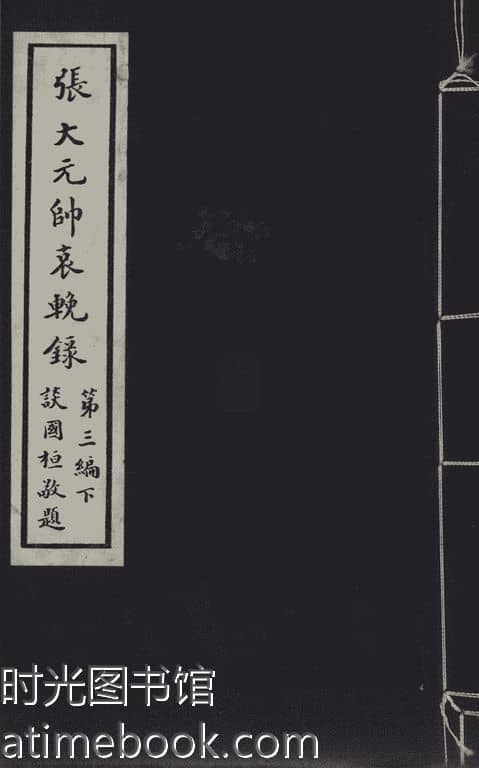 張大元帥哀輓錄
第三編下
談國桓敬題
时光图书馆
atimebook.com